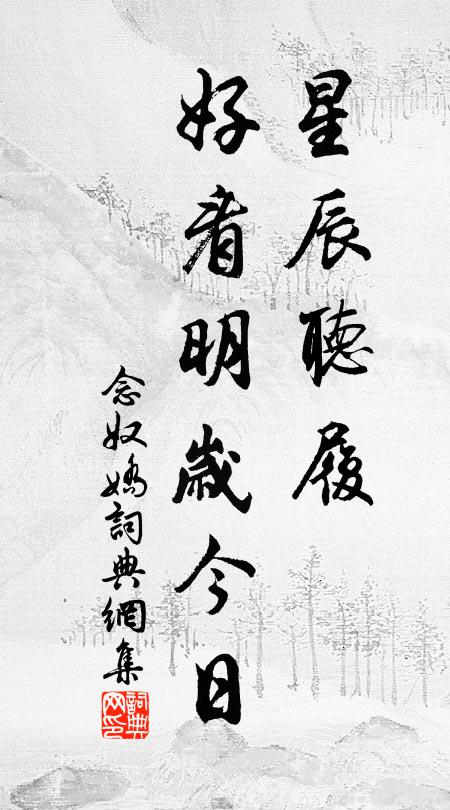 星辰聽履
好看明歲今日
念奴嬌詞典網集
詞典網印